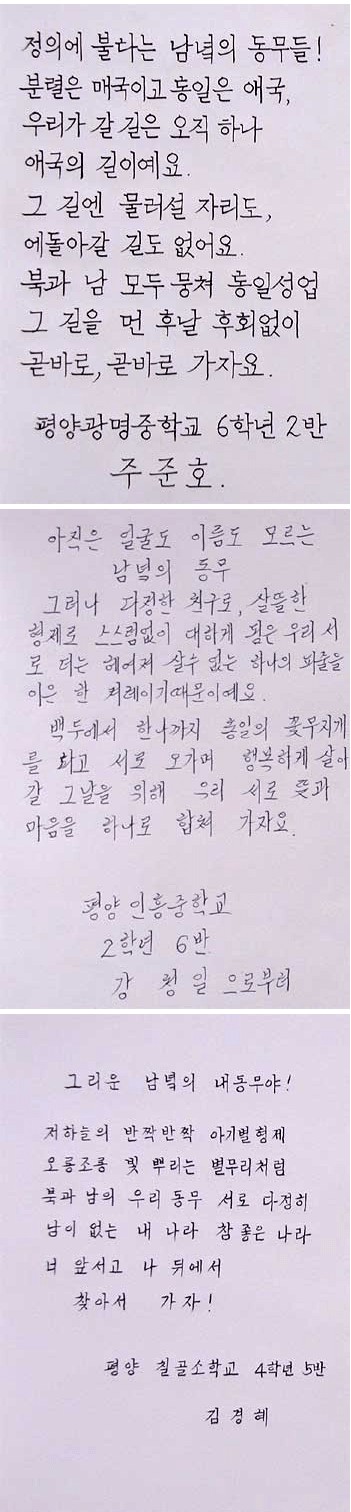 정의에 불타는 남녘의 동무들!
분렬은 매국이고 통일은 애국,
우리가 갈 길은 오직 하나
애국의 길이예요.
그 길엔 물러설 자리도,
에돌아갈 길도 없어요.
북과 남 모두 뭉쳐 통일성업
그 길을 먼 후날 후회없이
곧바로, 곧바로 가자요.
평양광명중학교 6학년 2반
주준호.
아직은 얼굴도 이름도 모르는
남녘의 동무
그러나 다정한 친구로, 살뜰한
형제로 스스럼없이 대하게 됨은 우리 서
로 더는 헤여져 살수 없는 하나의 피줄을
이은 한 겨레이기때문이예요.
백두에서 한나까지 통일의 꽃무지개
를 타고 서로 오가며 행복하게 살아
갈 그날을 위해 우리 서로 뜻과
마음을 하나로 합쳐 가자요.
평양인흥중학교
2학년 6반
강 일 으로부터
그리운 남녘의 내동무야!
저하늘의 반짝반짝 아기별형제
오롱조롱 빛 뿌리는 별무리처럼
북과 남의 우리 동무 서로 다정히
남이 없는 내 나라 참 좋은 나라
너 앞서고 나 뒤에서
찾아서 가자!
평양 칠골소학교 4학년 5반
김경혜